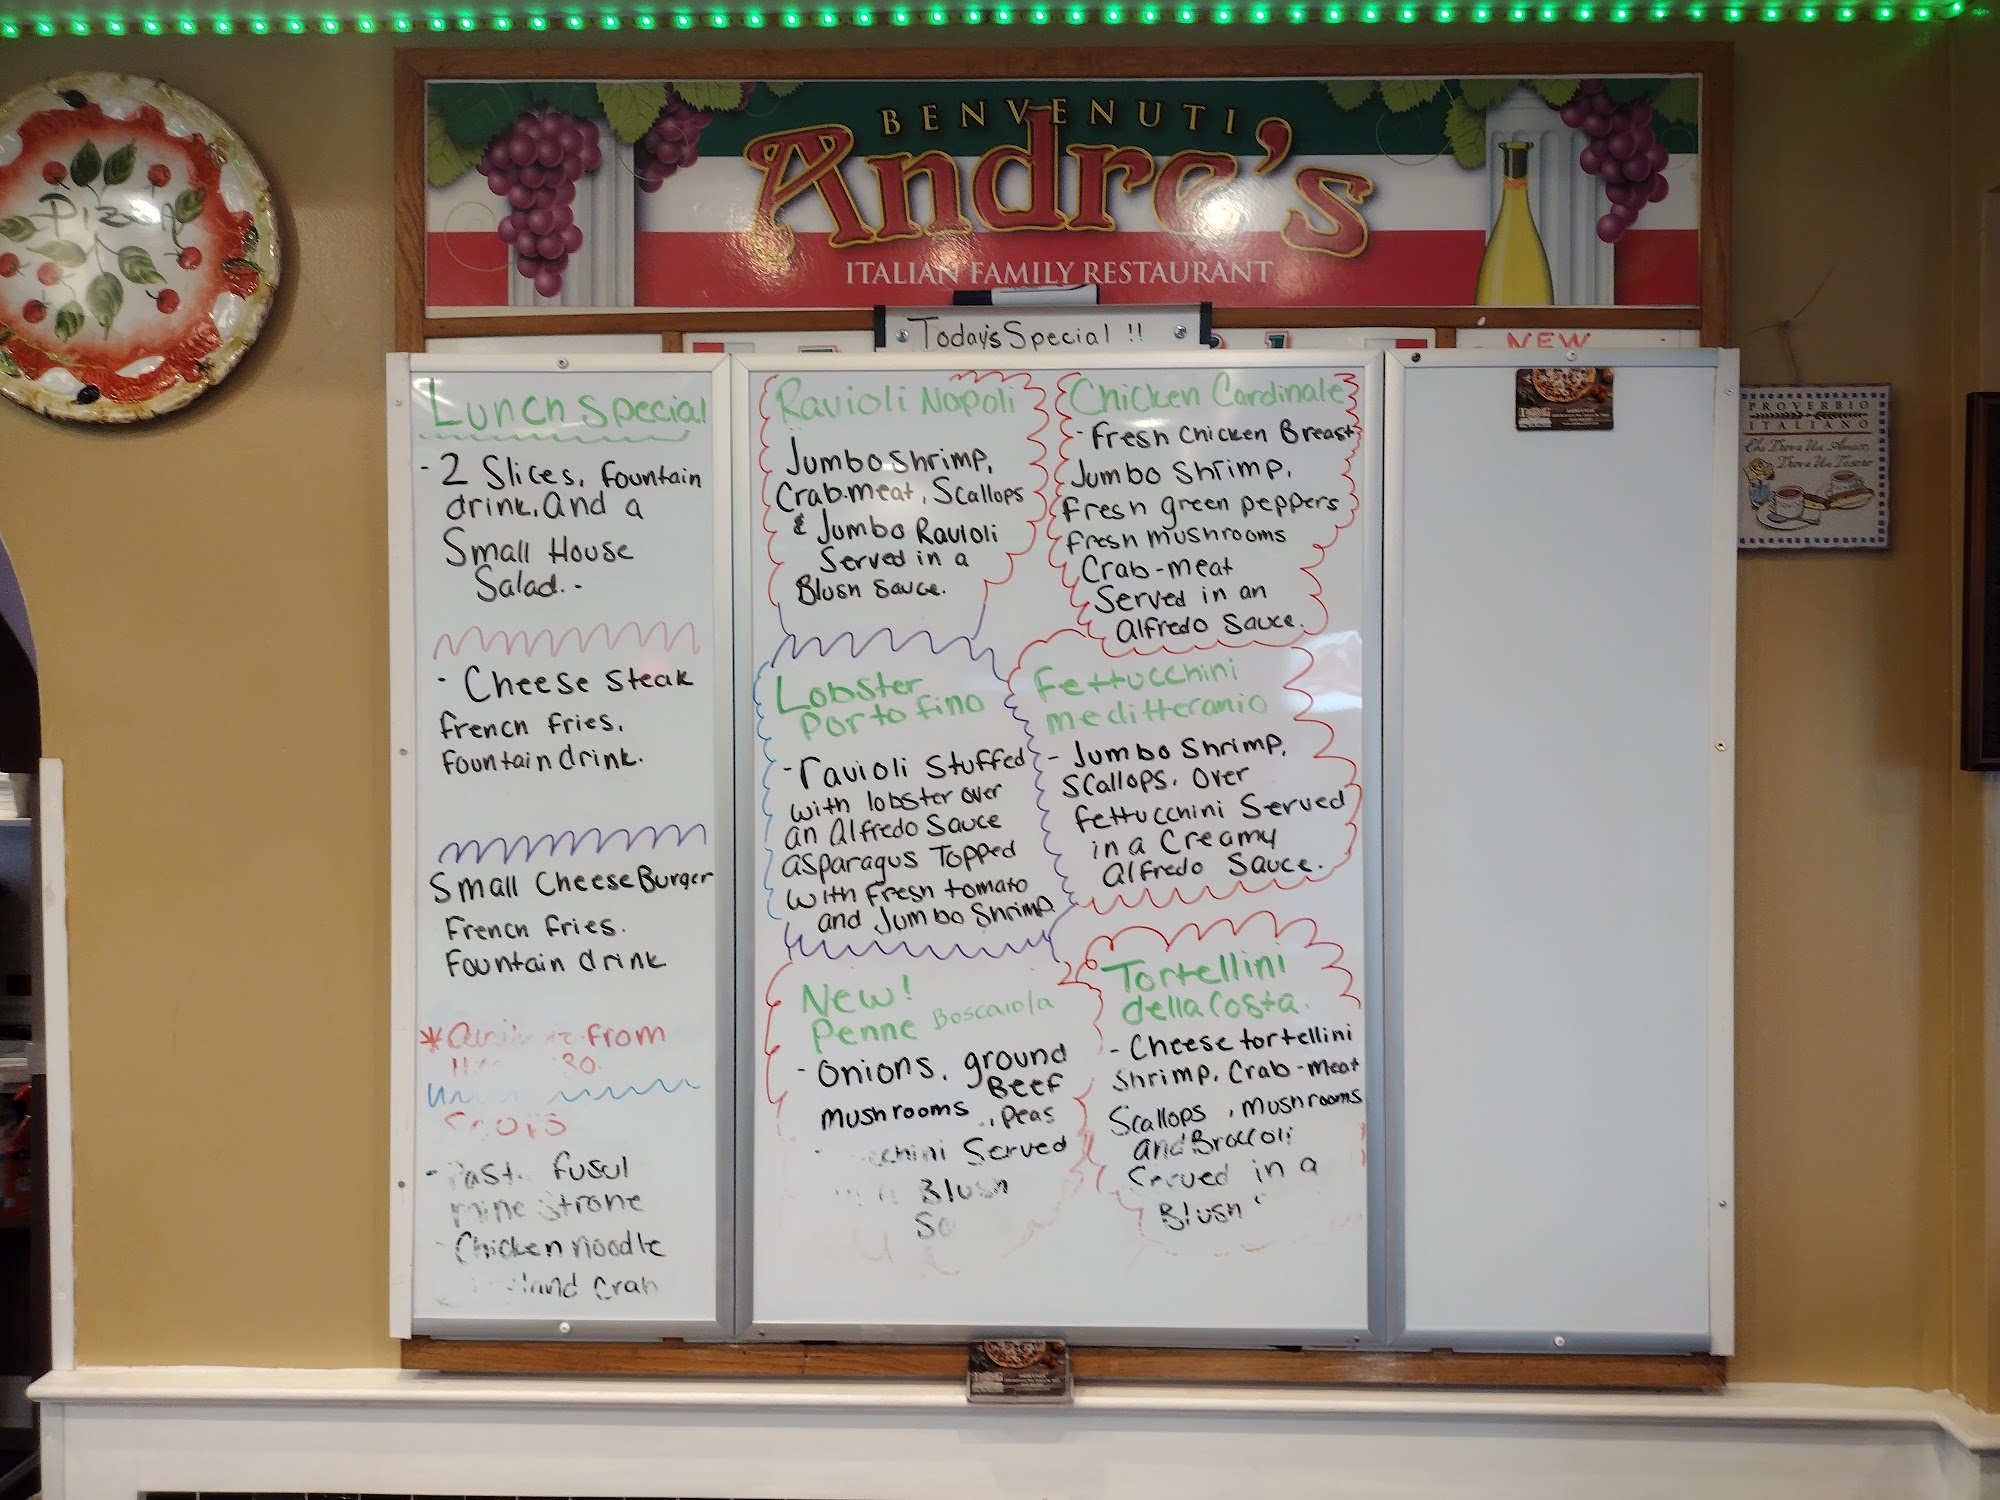 Pizza
BENVENUTI
Andre's
ITALIAN FAMILY RESTAURANT
Today's Special !!
NEW
Lunch Special
- 2 Slices, fountain
drink, And a
Small House
Salad. -
- Cheese steak
french fries,
fountain drink.
Small Cheese Burger
French fries.
Fountain drink
* from
30.
- fusul
minestrone
- Chicken noodle
and Crab
Ravioli Napoli
Jumbo shrimp,
Crab-meat, Scallops
& Jumbo Ravioli
Served in a
Blush Sauce.
Chicken Cardinale
- Fresh Chicken Breast
Jumbo Shrimp,
Fresh green peppers
fresh mushrooms
Crab-meat
Served in an
Alfredo Sauce.
Lobster
Portofino
- ravioli Stuffed
with lobster over
an Alfredo Sauce
asparagus Topped
with Fresh tomato
and Jumbo Shrimp
Fettucchini
meditteranio
- Jumbo Shrimp,
Scallops, over
fettucchini Served
in a Creamy
Alfredo Sauce.
New!
Penne Boscaiola
- onions, ground
Beef
mushrooms, peas
Served
Blush
Tortellini
della Costa.
- Cheese tortellini
Shrimp, Crab-meat
Scallops, mushrooms
and Broccoli
Served in a
Blush
PROVERBIO
ITALIANO
Chi Trova Un Amico,
Trova Un Tesoro